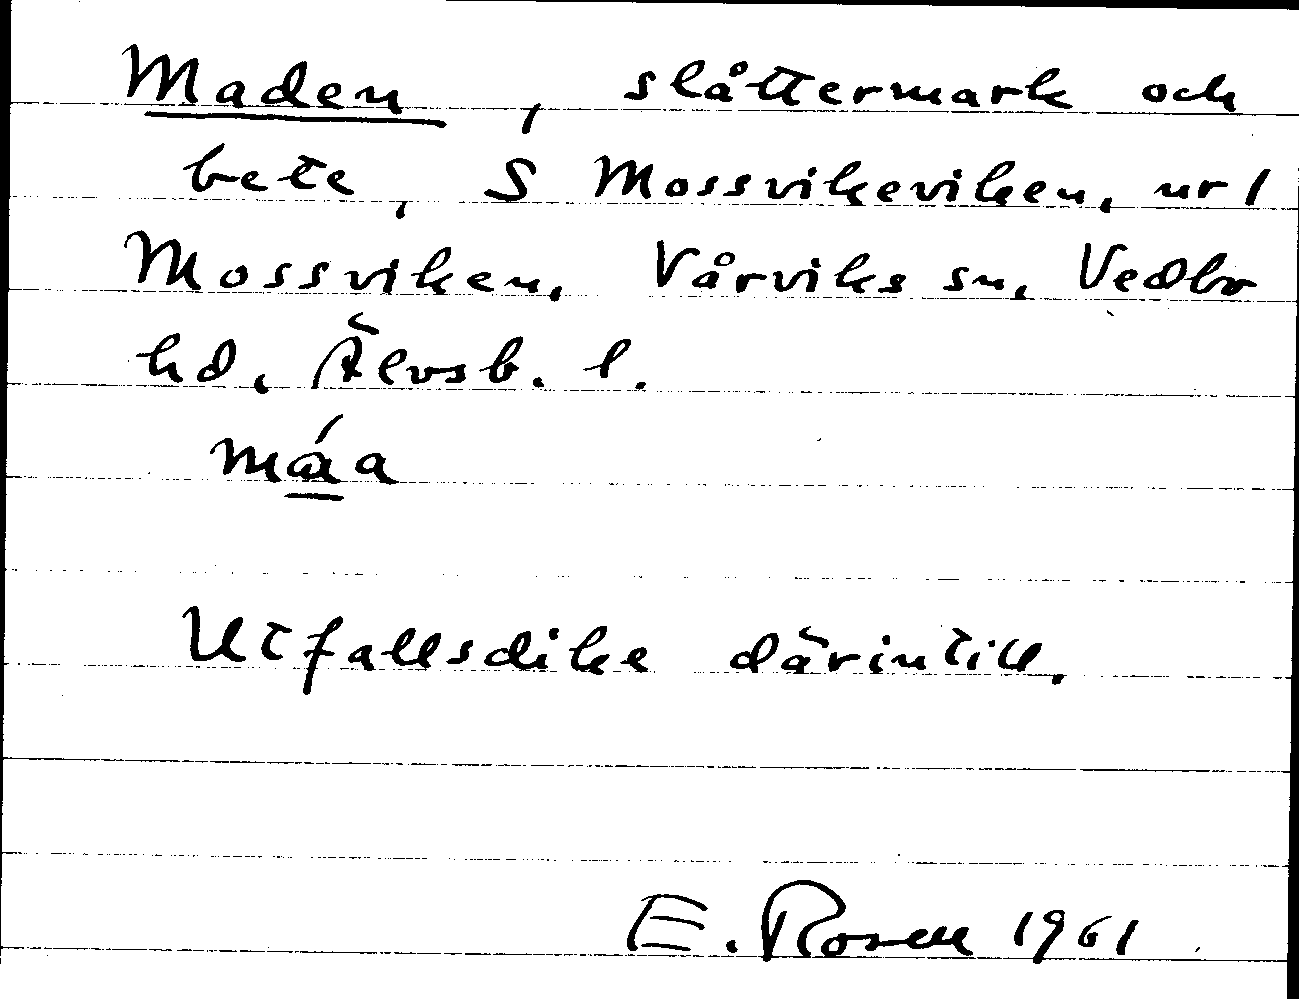 Maden, slåttermark och
bete, S Mossvikeviken, nr 1
Mossviken, Vårviks sn, Vedbo
hd, Älvsb. l.
máa
Utfallsdike därintill.
E. Rosen 1961